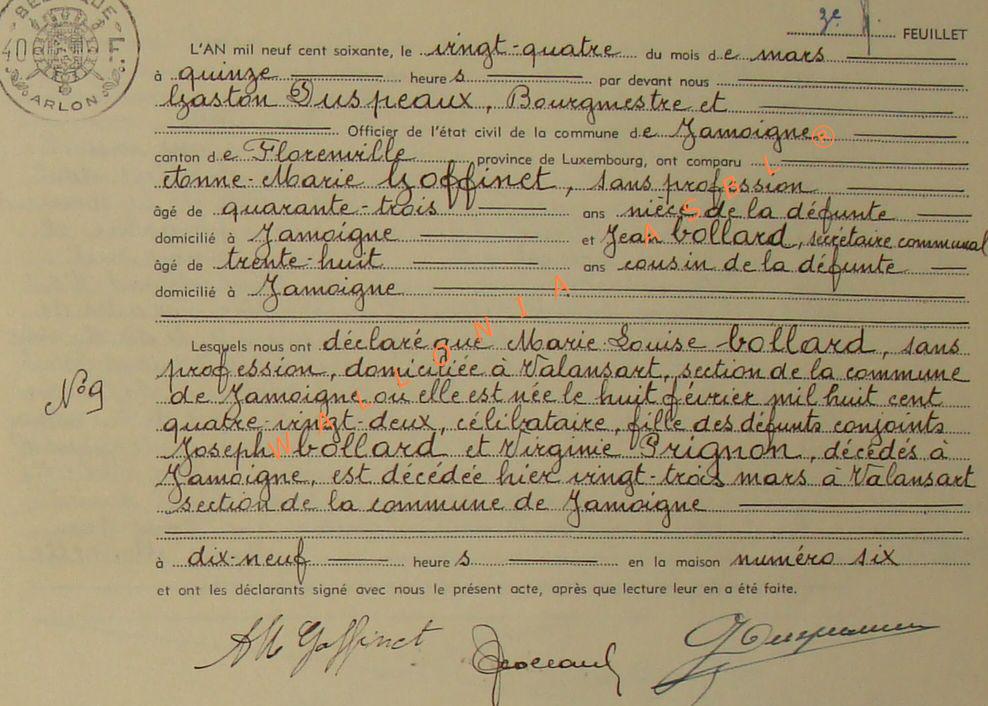 3e FEUILLET
L'AN mil neuf cent soixante, le vingt-quatre du mois de mars
à quinze heures par devant nous
Gaston Duspeaux, Bourgmestre et
Officier de l'état civil de la commune de Jamoigne
canton de Florenville province de Luxembourg, ont comparu
Anne-Marie Goffinet, sans profession
âgé de quarante-trois ans nièce de la défunte
domicilié à Jamoigne et Jean Collard, secrétaire communal
âgé de trente-huit ans cousin de la défunte
domicilié à Jamoigne
Lesquels nous ont déclaré que Marie-Louise Collard, sans
profession, domiciliée à Valansart, section de la commune
de Jamoigne où elle est née le huit février mil huit cent
N°9
quatre-vingt-deux, célibataire, fille des défunts conjoints
Joseph Collard et Virginie Prignon, décédés à
Jamoigne, est décédée hier vingt-trois mars à Valansart
section de la commune de Jamoigne
à dix-neuf heures en la maison numéro six
et ont les déclarants signé avec nous le présent acte, après que lecture leur en a été faite.
AM Goffinet JCollard GDuspeaux
ARLON
WALLONIA ASBL ®